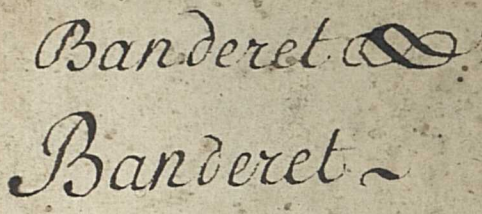 Banderet
Banderet ~